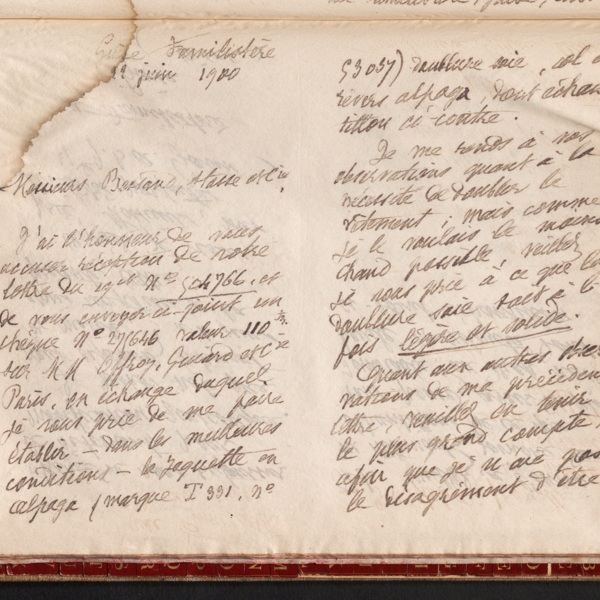 Guise Familistère
22 juin 1900
Messieurs Bertrand, et Cie,
J'ai l'honneur de vous
accuser réception de votre
lettre du 19 ct Nº 504766, et
de vous envoyer ci-joint un
chèque Nº 271646 valeur 110
sur MM Offroy, Guiard et Cie
Paris, en échange duquel
je vous prie de me faire
établir – dans les meilleures
conditions – la jaquette en
alpaga (marque T 991, nº
53037) doublure soie, col
revers alpaga, dont échan
tillon ci-contre.
Je me rends à vos
observations quant à la
nécessité de doubler le
vêtement; mais comme
je le voulais le moins
chaud possible, veillez
je vous prie à ce que la
doublure soie soit à la
fois légère et solide.
Quant aux autres obser
vations de ma précédente
lettre, veuillez en tenir
le plus grand compte,
afin que je n'aie pas
le désagrément d'être